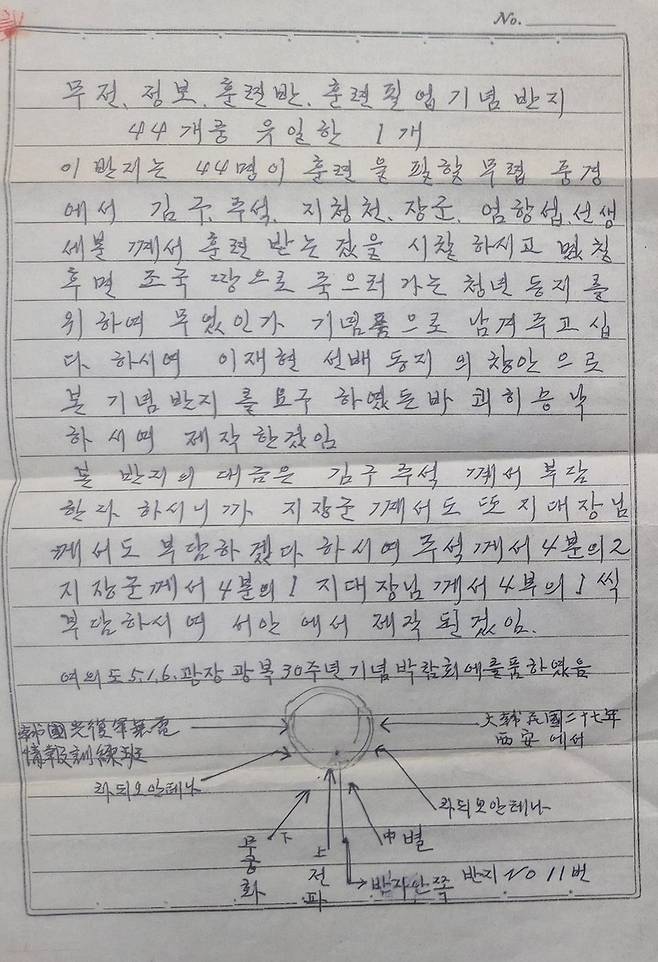 No.
무전、정보、훈련반、훈련필업기념반지
44개중 유일한 1개
이 반지는 44명이 훈련을 필할 무렵 중경
에서 김구、주석、지청천、장군、엄항섭、선생
세분 께서 훈련 받는 것을 시찰 하시고 몇칠
후면 조국 땅으로 죽으러 가는 청년 동지를
위하여 무엇인가 기념품으로 남겨주고 십
다、하시여 이재현 선배 동지 의 창안 으로
본 기념반지 를 요구 하였든바 쾌히 승낙
하시여 제작 한것임
본 반지의 대금은 김구 주석 께서 부담
한다、하시니 까 지장군 께서도 또 지대장님
께서도 부담하겠다、하시여 주석께서 4분의2
지장군께서 4분의1 지대장님 께서 4분의1 씩
부담하시여 서안 에서 제작 된것임.
여의도 5.1.6.광장 광복30주년기념박람회에출품하였음
韓國光復軍無電 大韓民國二十七年
情報訓練班 西安 에서
라듸오안테나 라듸오안테나
무궁화 下 上 전파 中 별
반지안쪽 반지 NO 11번